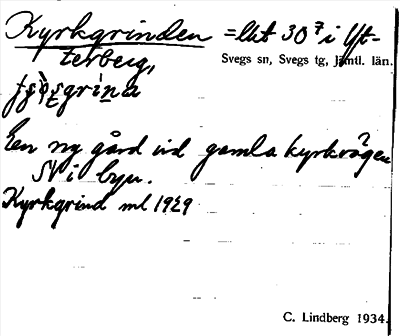 Kyrkgrinden = lht 30⁷ i Ytterberg,
Svegs sn, Svegs tg, Jämtl. län.
En ny gård vid gamla kyrkvägen
SV i byn.
Kyrkgrind ml 1929
C. Lindberg 1934.